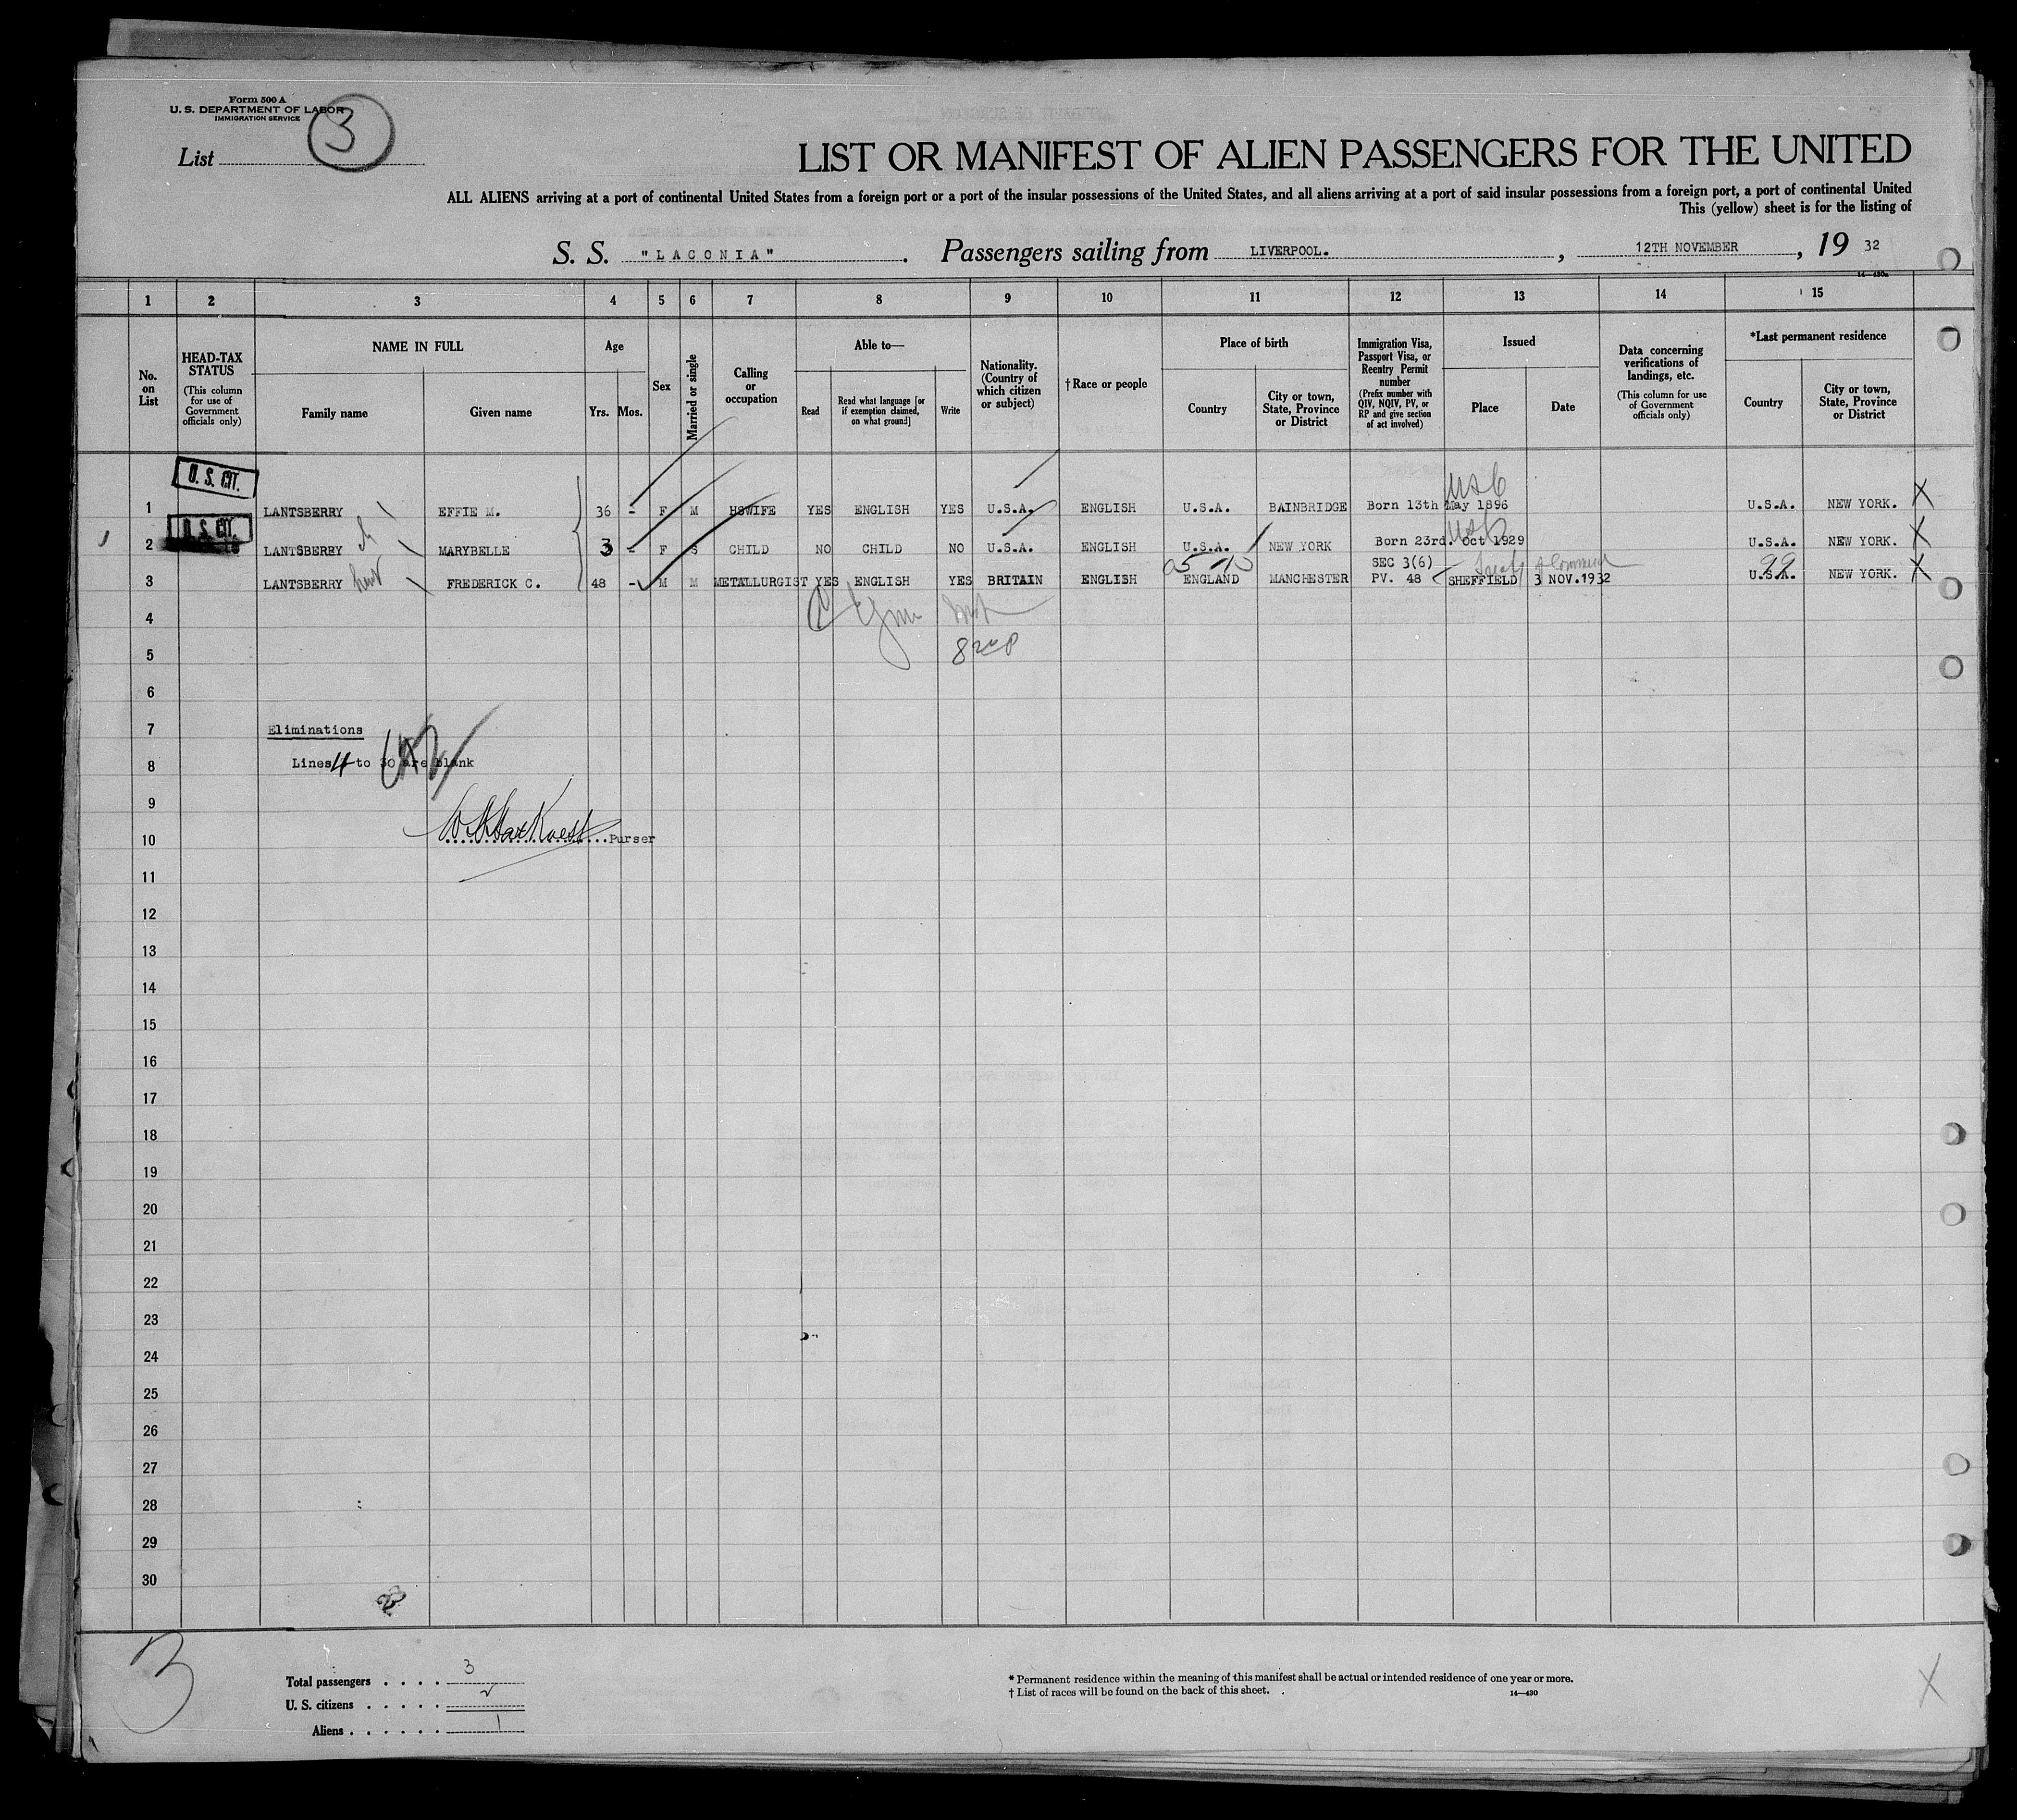 Form 500 A
U. S. DEPARTMENT OF LABOR
IMMIGRATION SERVICE
3
List
LIST OR MANIFEST OF ALIEN PASSENGERS FOR THE UNITED
ALL ALIENS arriving at a port of continental United States from a foreign port or a port of the insular possessions of the United States, and all aliens arriving at a port of said insular possessions from a foreign port, a port of continental United
This (yellow) sheet is for the listing of
S. S. "LACONIA". Passengers sailing from LIVERPOOL., 12TH NOVEMBER, 19 32
14—430a
1 2 3 4 5 6 7 8 9 10 11 12 13 14 15
No. on List
HEAD-TAX STATUS (This column for use of Government officials only)
NAME IN FULL
Family name
Given name
Age
Yrs. Mos.
Sex
Married or single
Calling or occupation
Able to—
Read
Read what language [or if exemption claimed, on what ground]
Write
Nationality. (Country of which citizen or subject)
† Race or people
Place of birth
Country
City or town, State, Province or District
Immigration Visa, Passport Visa, or Reentry Permit number (Prefix number with QIV, NQIV, PV, or RP and give section of act involved)
Issued
Place
Date
Data concerning verifications of landings, etc. (This column for use of Government officials only)
*Last permanent residence
Country
City or town, State, Province or District
U. S. CIT.
1 LANTSBERRY EFFIE M. 36 - F M HSWIFE YES ENGLISH YES U.S.A. ENGLISH U.S.A. BAINBRIDGE Born 13th May 1896 U.S.A. NEW YORK. X
U. S. CIT.
2 LANTSBERRY MARYBELLE 3 - F S CHILD NO CHILD NO U.S.A. ENGLISH U.S.A. NEW YORK Born 23rd. Oct 1929 U.S.A. NEW YORK. X
SEC 3(6)
99
3 LANTSBERRY FREDERICK C. 48 - M M METALLURGIST YES ENGLISH YES BRITAIN ENGLISH ENGLAND MANCHESTER PV. 48 SHEFFIELD 3 NOV.1932 U.S.A. NEW YORK. X
4
5
6
7 Eliminations
8 Lines 4 to 30 are blank
9
10 Purser
11
12
13
14
15
16
17
18
19
20
21
22
23
24
25
26
27
28
29
30
3
Total passengers . . . . 3
U. S. citizens . . . . . 2
Aliens . . . . . . 1
* Permanent residence within the meaning of this manifest shall be actual or intended residence of one year or more.
† List of races will be found on the back of this sheet.
14—430
X